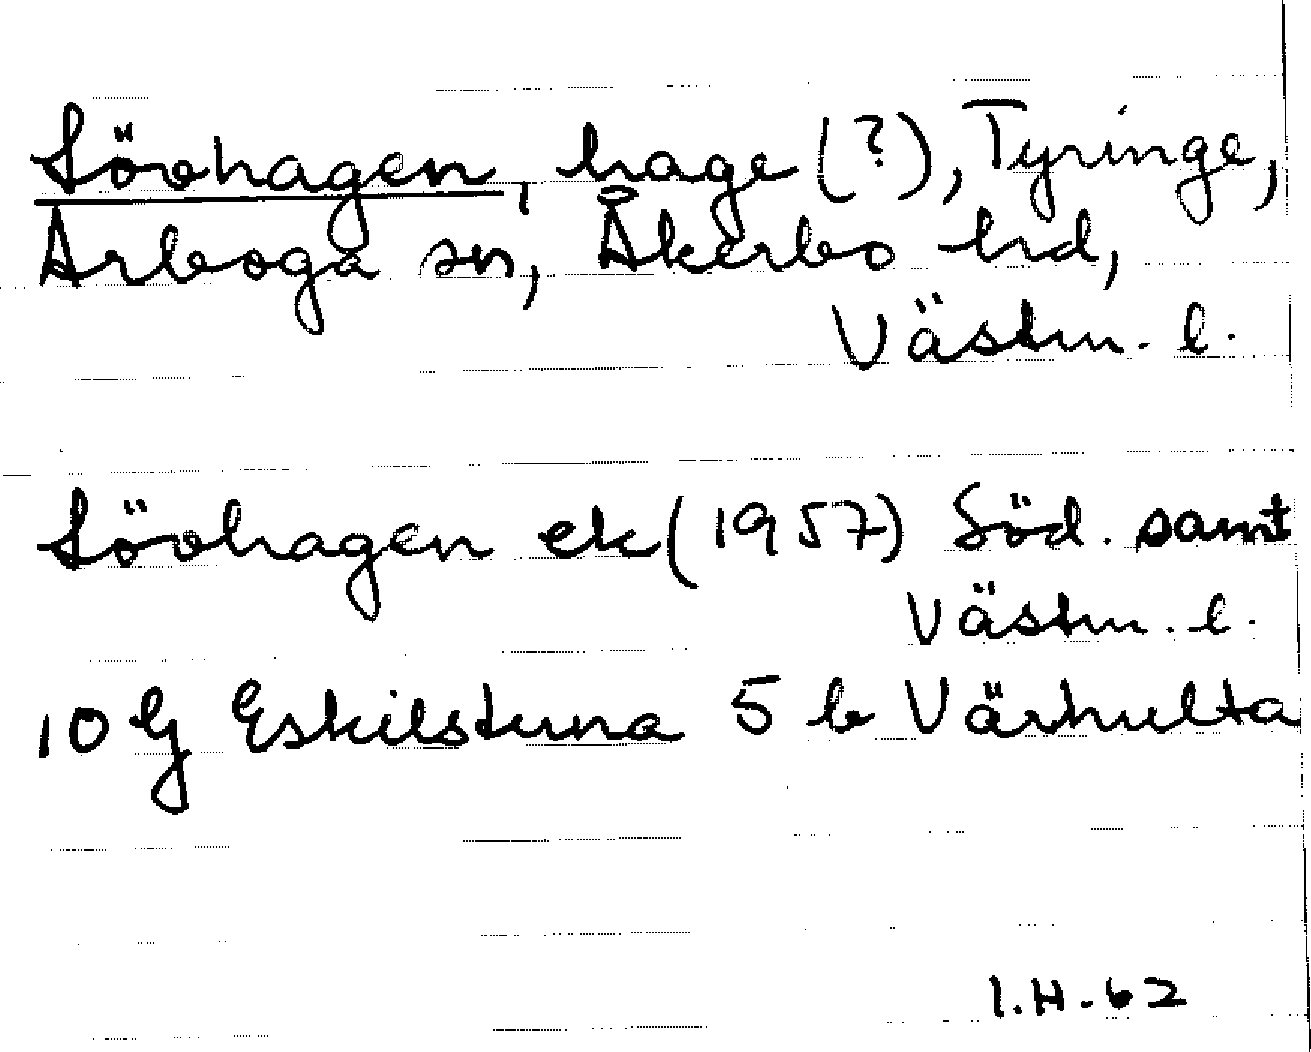 Lövhagen, hage (?), Tyringe,
Arboga sn, Åkerbo hd,
Västm. l.
Lövhagen ek (1957) Söd. samt
Västm. l.
10 G Eskilstuna 5 b Värhulta
I.H. 62